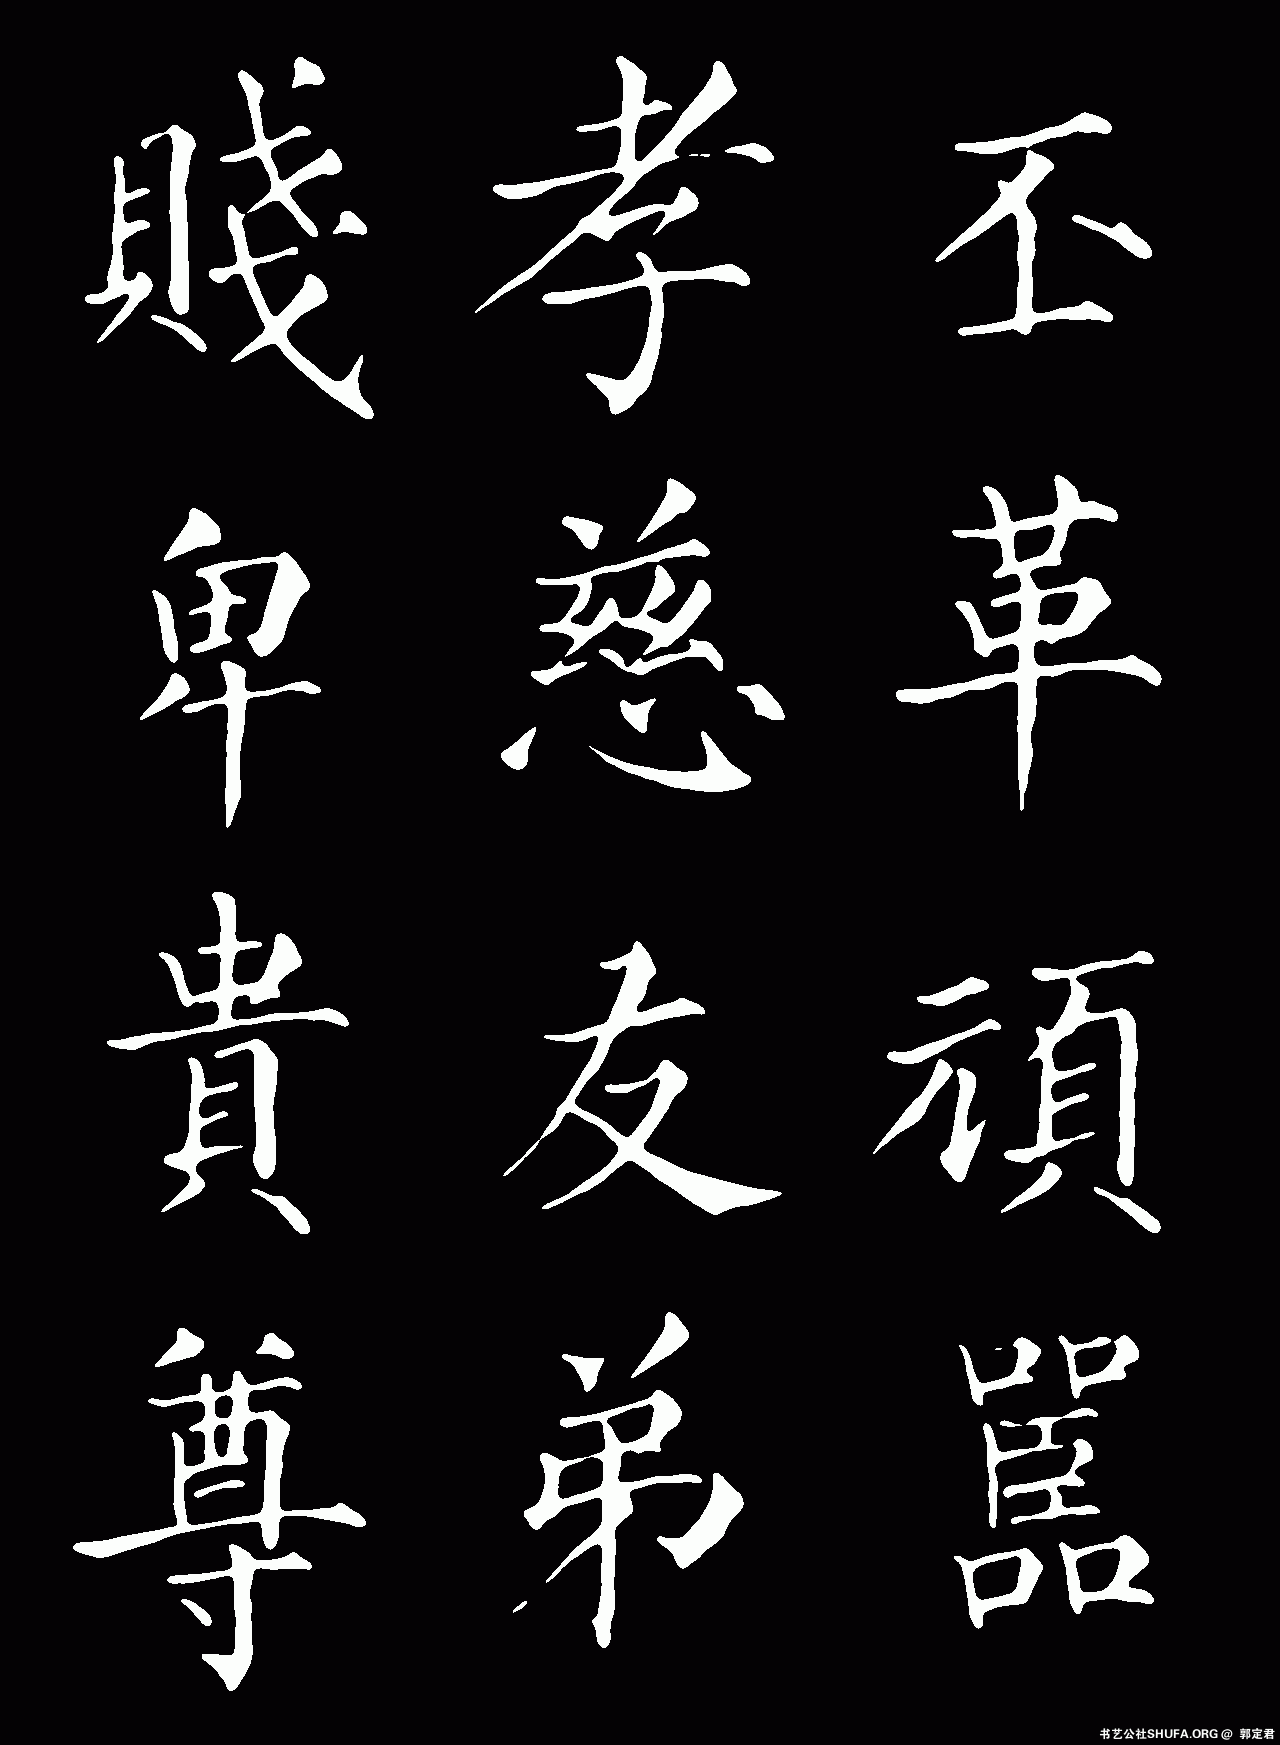 丕革頑嚚
孝慈友弟
賤卑貴尊
书艺公社SHUFA.ORG @ 郭定君